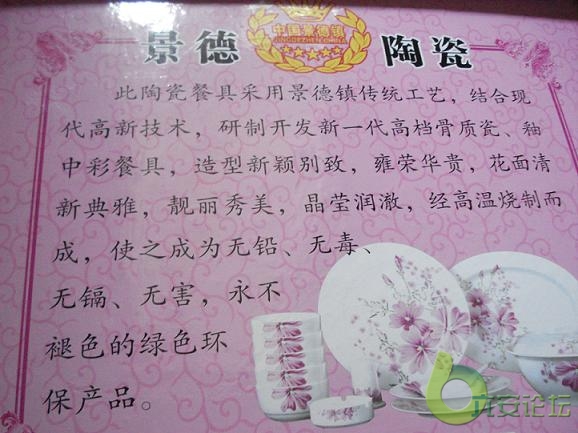 中国景德镇
JINGDEZHENCHINA
景德 陶瓷
此陶瓷餐具采用景德镇传统工艺，结合现
代高新技术，研制开发新一代高档骨质瓷、釉
中彩餐具，造型新颖别致，雍荣华贵，花面清
新典雅，靓丽秀美，晶莹润澈，经高温烧制而
成，使之成为无铅、无毒、
无镉、无害，永不
褪色的绿色环
保产品。
六安论坛